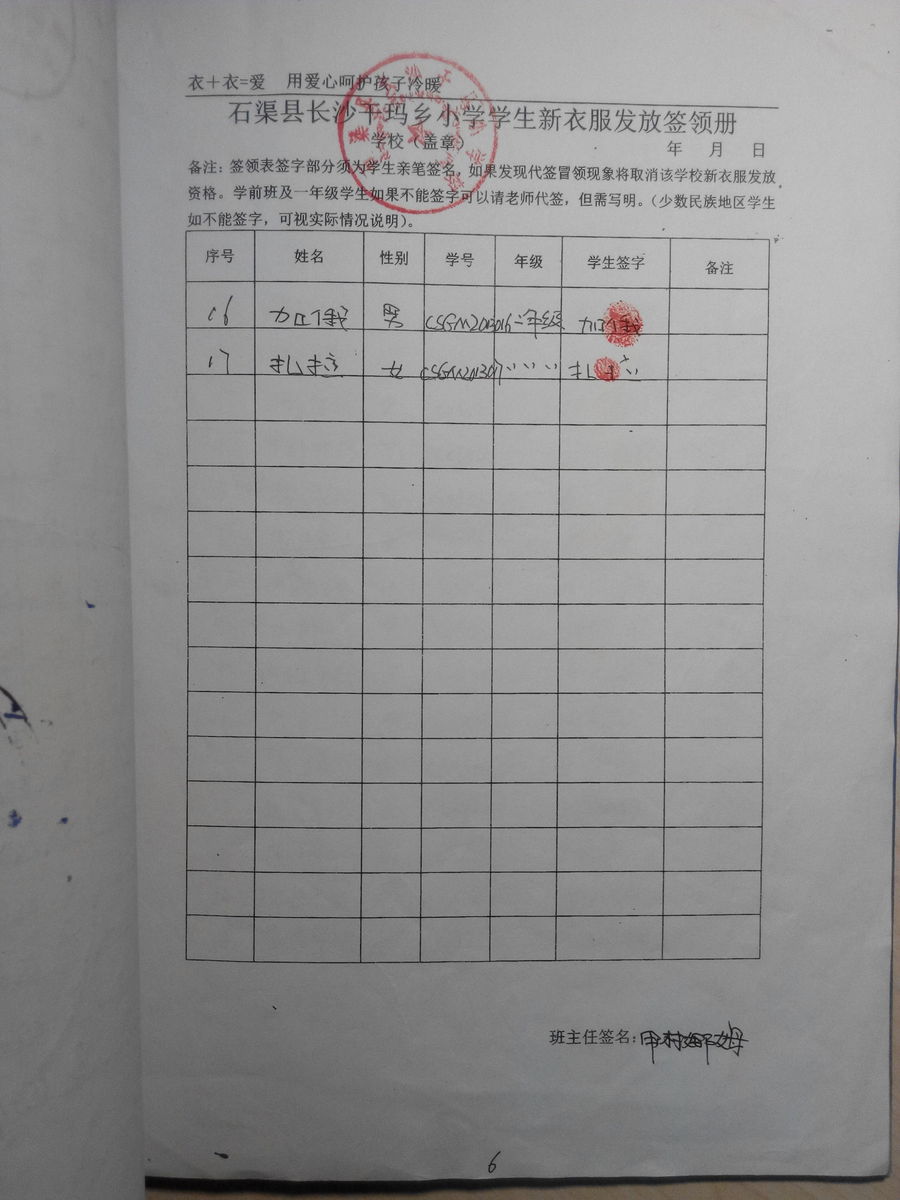 衣＋衣=爱 用爱心呵护孩子冷暖
石渠县长沙干玛乡小学学生新衣服发放签领册
学校（盖章）
年 月 日
备注：签领表签字部分须为学生亲笔签名，如果发现代签冒领现象将取消该学校新衣服发放
资格。学前班及一年级学生如果不能签字可以请老师代签，但需写明。（少数民族地区学生
如不能签字，可视实际情况说明）。
序号 姓名 性别 学号 年级 学生签字 备注
16 加 男 CSGM2013016 二年级 加
17 扎拉 女 CSGM2013017 〃 〃 〃 扎拉
班主任签名：
6